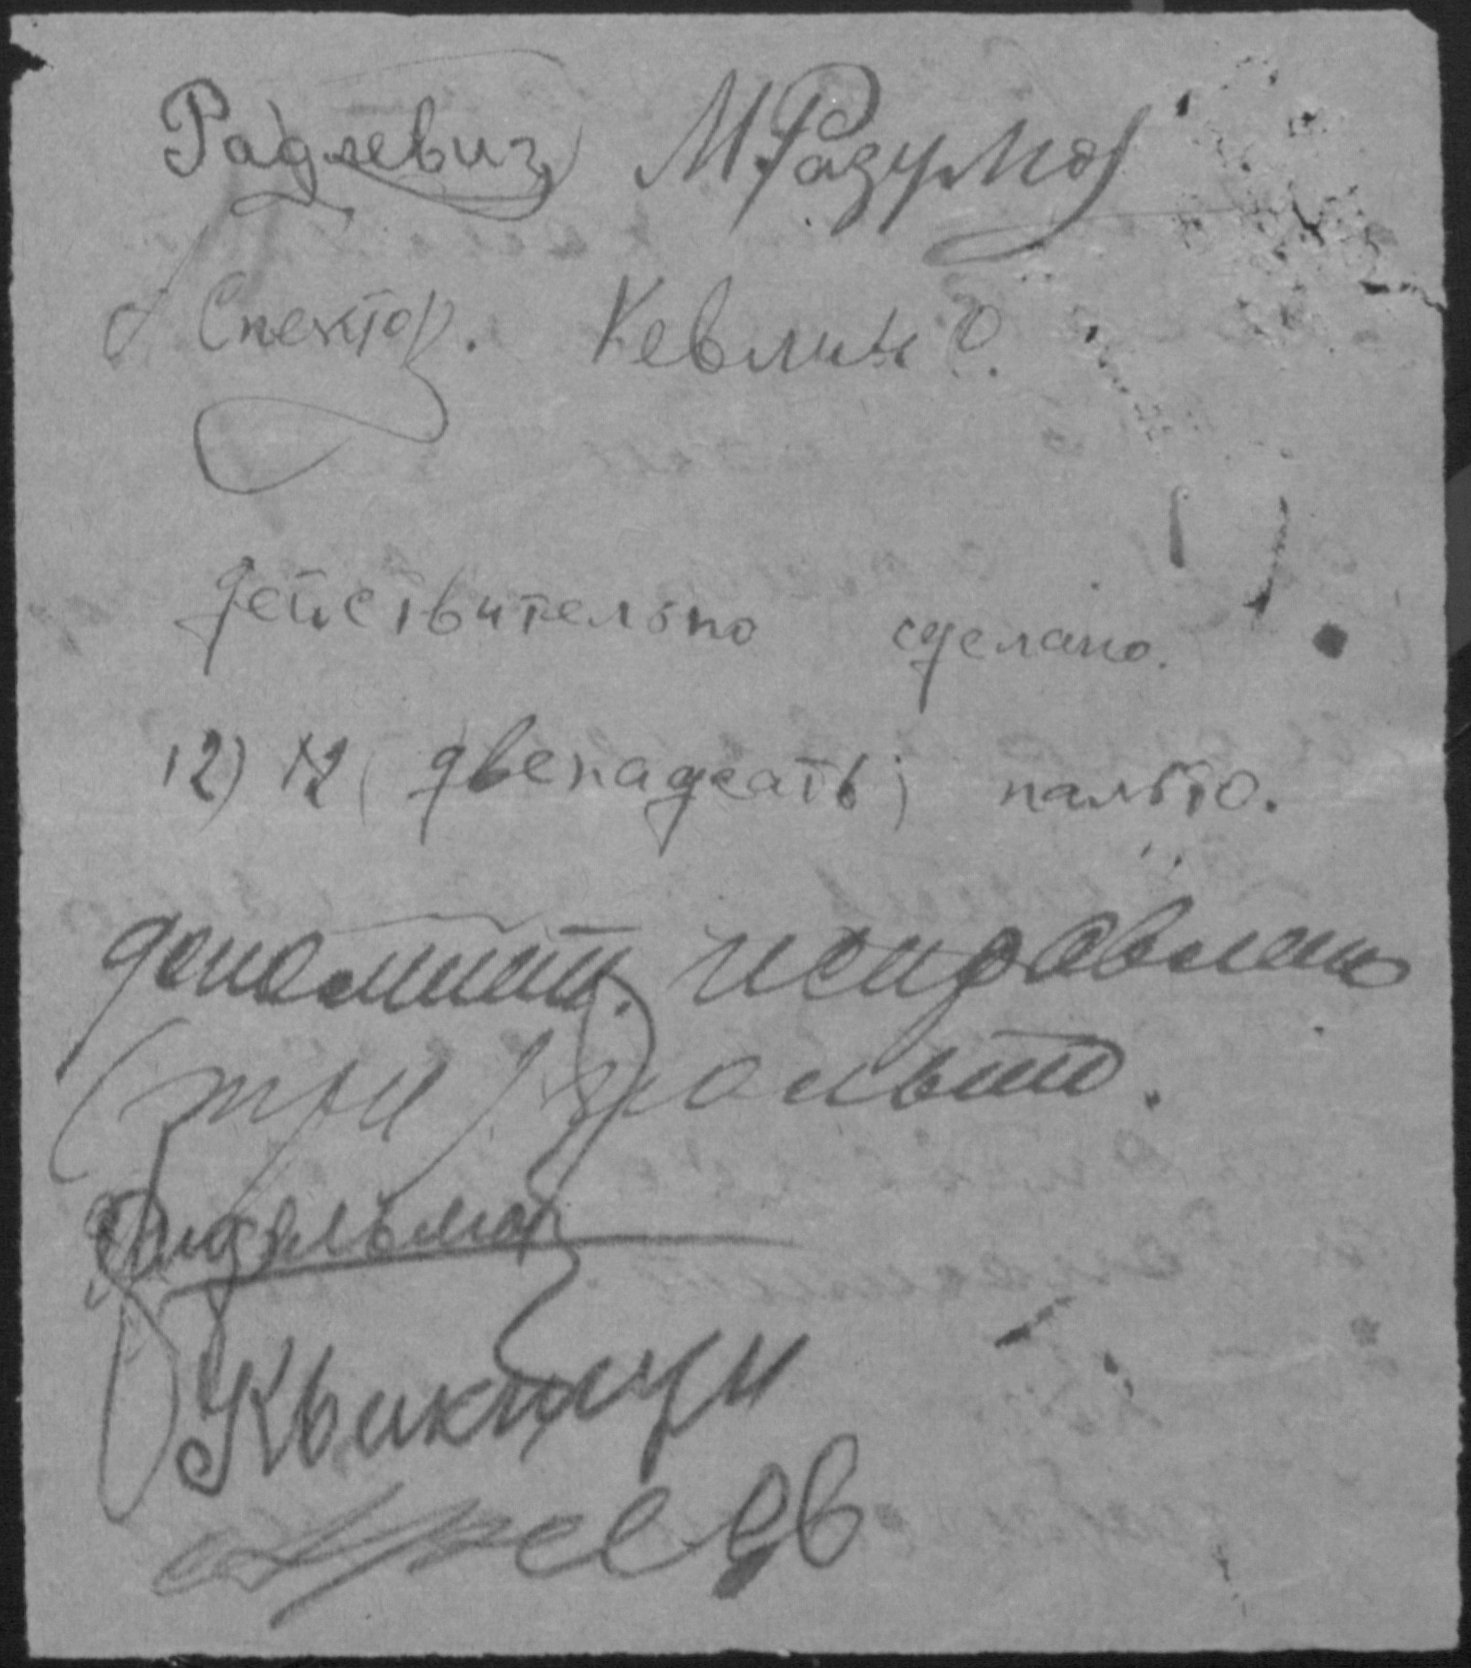 Радлевиз М. Разумов
Спектор. Кевлин О.
Действительно сделано.
12) 12 (двенадсать) пальто.
дополнит. исправлено
(три) пальто.